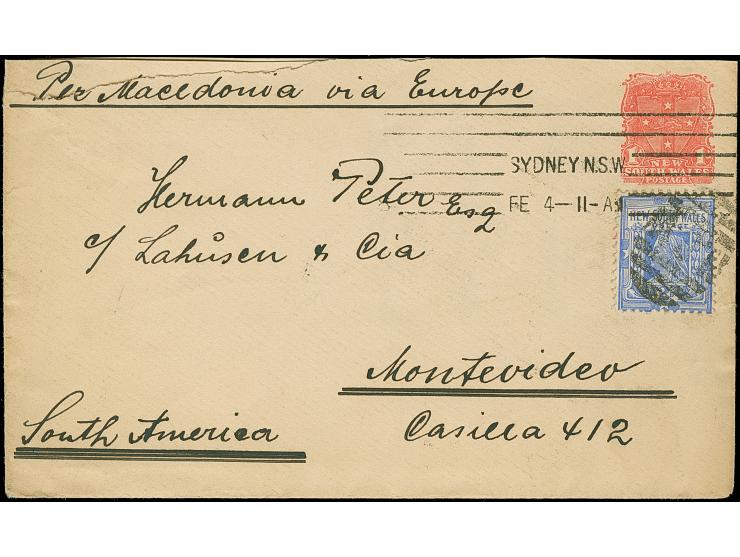 Per Macedonia via Europe
1 1
NEW
SOUTH WALES
POSTAGE
SYDNEY N.S.W.
FE 4—11-A
NEW SOUTH WALES
Hermann Peter Esq
c/ Lahusen & Cia
Montevideo
South America
Casilla 412